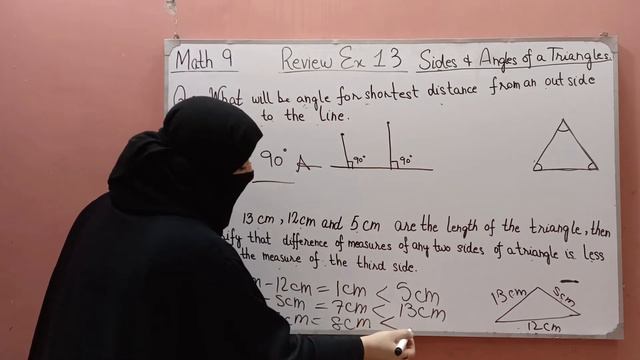 Math 9 Review Ex 13 Sides & Angles of a Triangles.
What will be angle for shortest distance from an out side
to the line.
90° A 90° 90°
13 cm, 12cm and 5 cm are the length of the triangle, then
that difference of measures of any two sides of a triangle is less
the measure of the third side.
- 12cm = 1cm < 5cm
- 5cm = 7cm < 13cm
= 8cm <
13cm 5cm
12cm